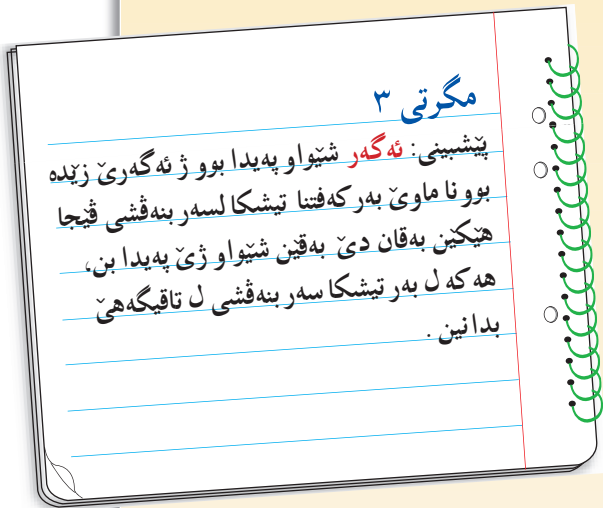 مگرتی ٣
پێشبینی: ئەگەر شێواو پەیدا بوو ژ ئەگەرێ زێدە
بوونا ماوێ بەرکەفتنا تیشکا لسەر بنەڤشی ڤێجا
هێکێن بەقان دێ بەقێن شێواو ژێ پەیدا بن،
هەکە ل بەر تیشکا سەر بنەڤشی ل تاقیگەهێ
بدانین .